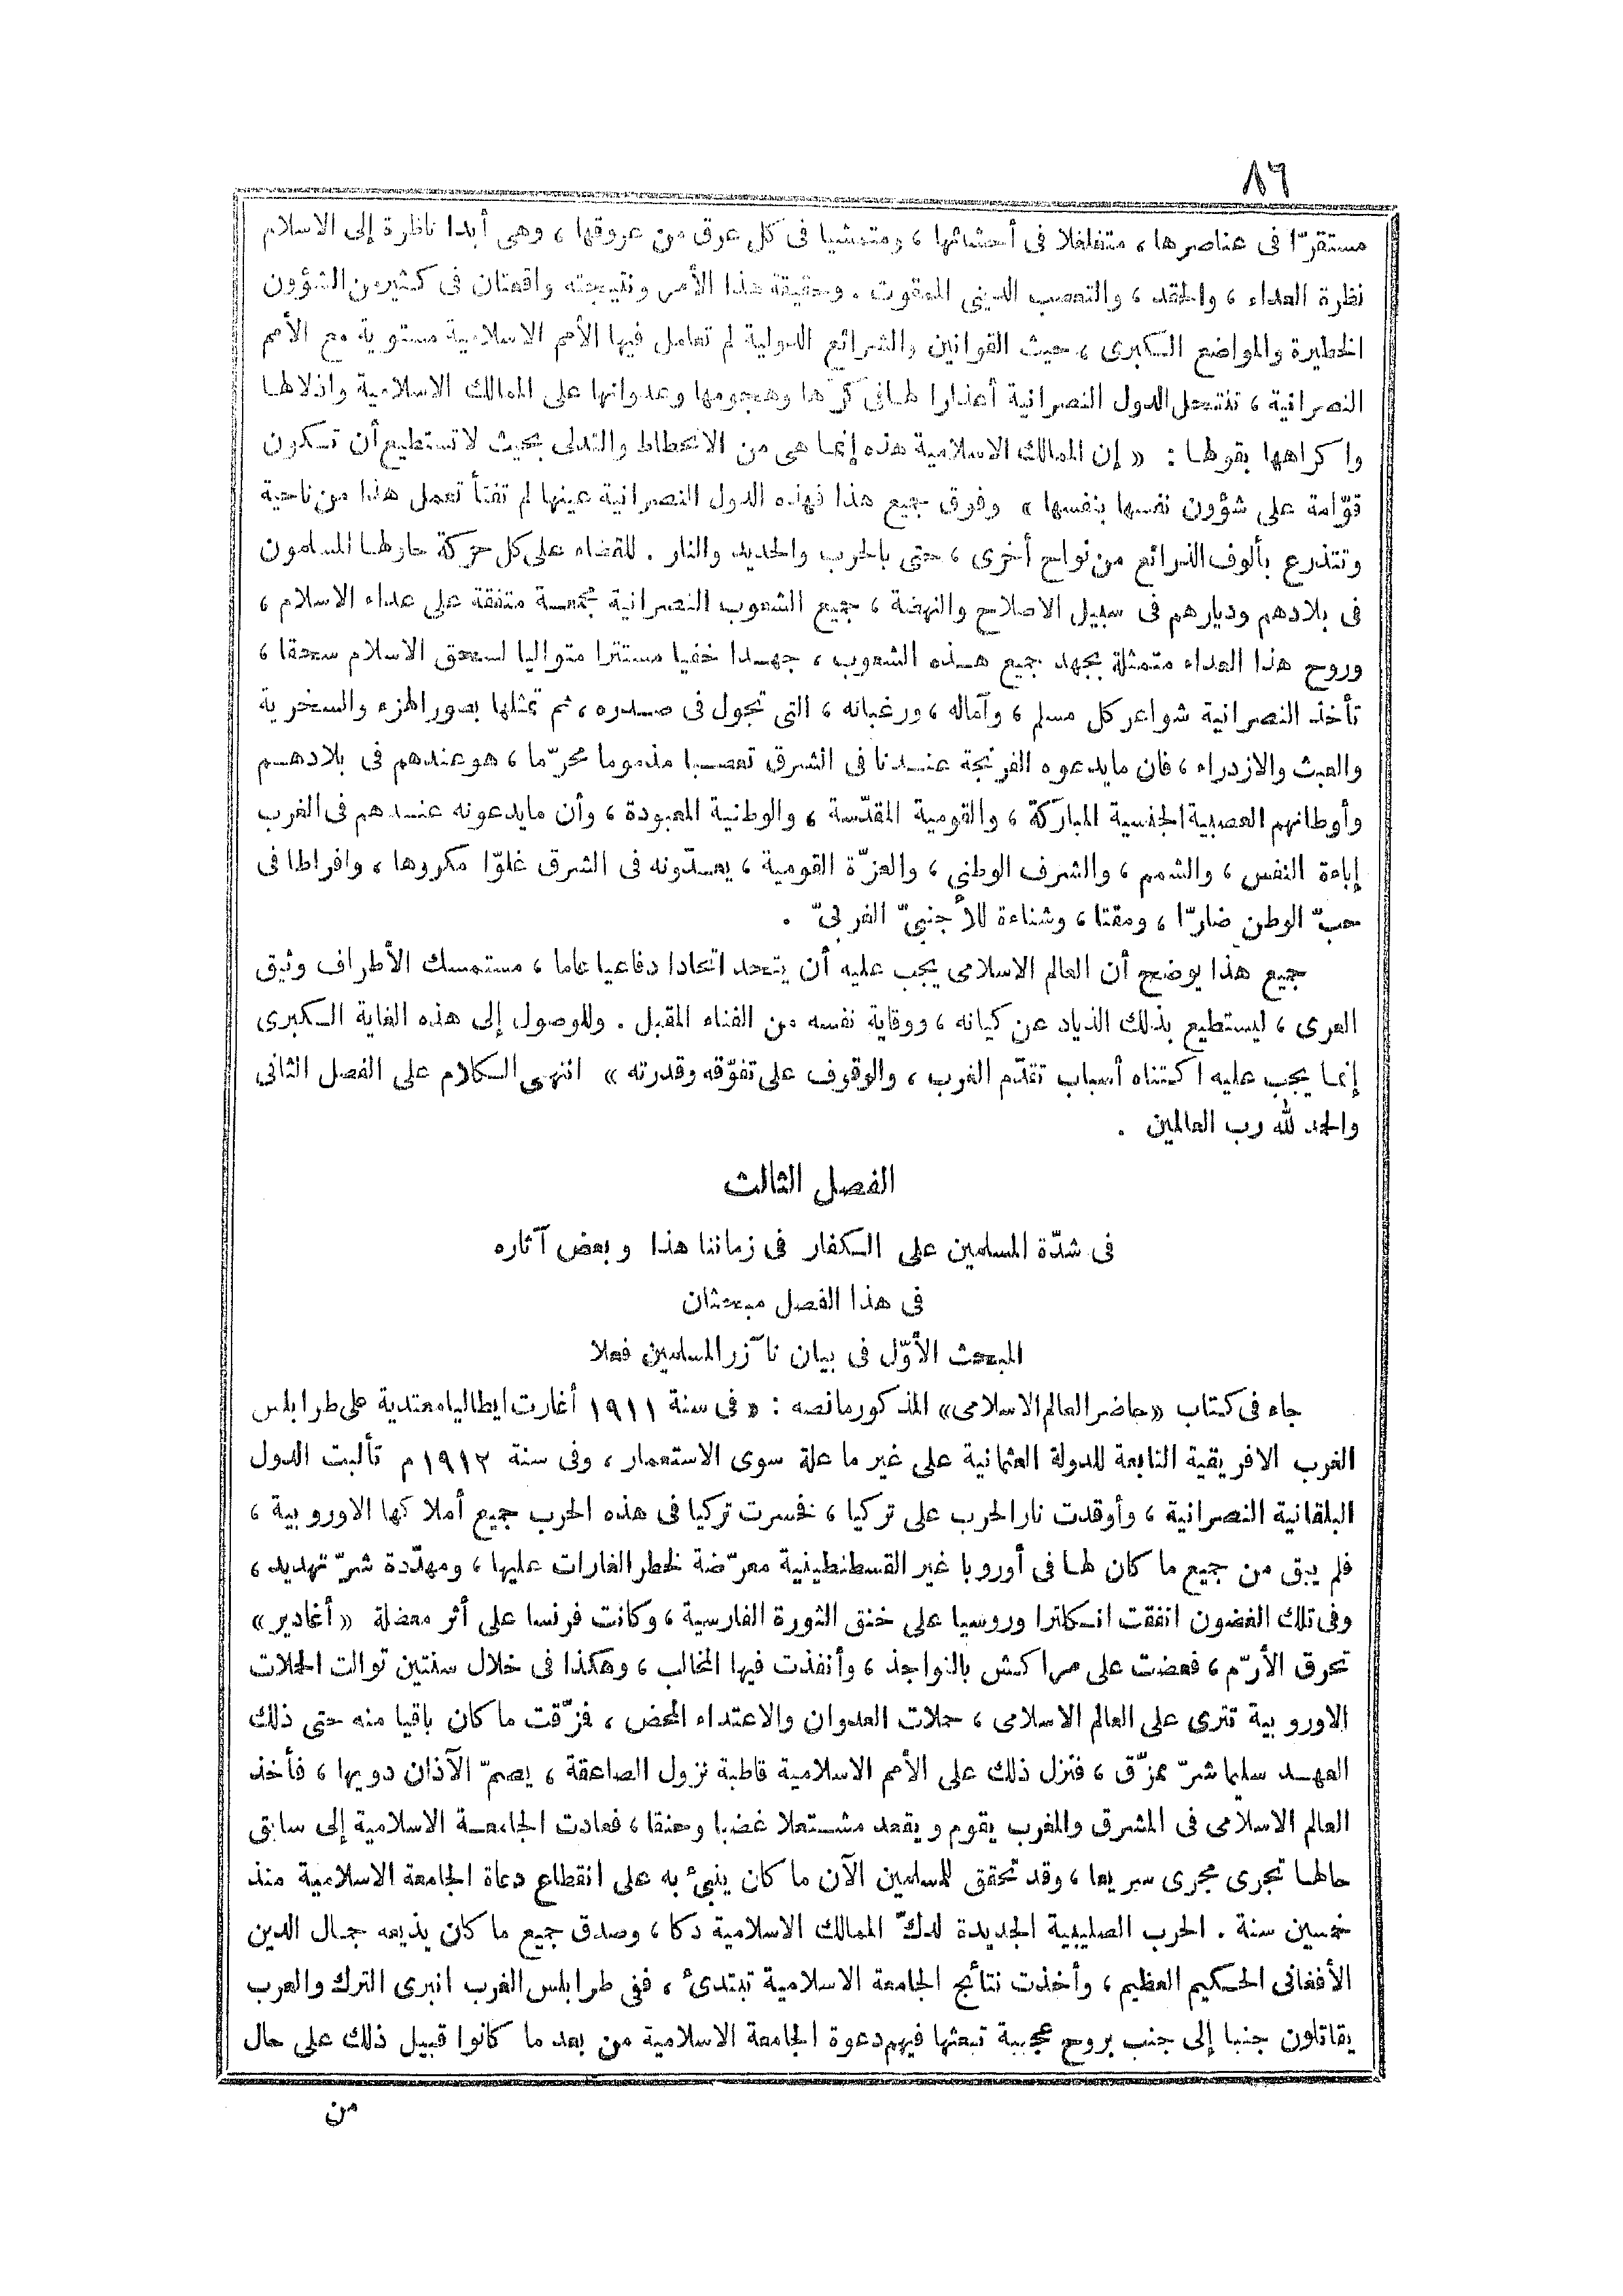 ٨٦
مستقرّا فى عناصرها ، متغلغلا فى أحشائها ، ومتمشيا فى كل عرق من عروقها ، وهى أبدا ناظرة إلى الاسلام
نظرة العداء ، والحقد ، والتعصب الدينى الممقوت . وحقيقة هذا الأمر ونتيجته واقعتان فى كثير من الشؤون
الخطيرة والمواضع الكبرى ، حيث القوانين والشرائع الدولية لم تعامل فيها الأمم الاسلامية مستوية مع الأمم
النصرانية ، تنتحل الدول النصرانية أعذارا لها فى كرّها وهجومها وعدوانها على الممالك الاسلامية واذلالها
واكراهها بقولها : « إن الممالك الاسلامية هذه إنما هى من الانحطاط والتدلى بحيث لا تستطيع أن تكون
قوّامة على شؤون نفسها بنفسها » وفوق جميع هذا فهذه الدول النصرانية عينها لم تفتأ تعمل هذا من ناحية
وتتذرع بألوف الذرائع من نواح أخرى ، حتى بالحرب والحديد والنار . للقضاء على كل حركة حاولها المسلمون
فى بلادهم وديارهم فى سبيل الاصلاح والنهضة ، جميع الشعوب النصرانية مجمعة متفقة على عداء الاسلام ،
وروح هذا العداء متمثلة بجهد جميع هذه الشعوب ، جهدا خفيا مستترا متواليا لسحق الاسلام سحقا ،
تأخذ النصرانية شواعر كل مسلم ، وآماله ، ورغباته ، التى تجول فى صدره ، ثم تمثلها بصور الهزء والسخرية
والعبث والازدراء ، فان مايدعوه الفرنجة عندنا فى الشرق تعصبا مذموما محرّما ، هو عندهم فى بلادهم
وأوطانهم العصبية الجنسية المباركة ، والقومية المقدّسة ، والوطنية المعبودة ، وأن مايدعونه عندهم فى الغرب
إباءة النفس ، والشمم ، والشرف الوطني ، والعزّة القومية ، يعدّونه فى الشرق غلوّا مكروها ، وافراطا فى
حبّ الوطن ضارّا ، ومقتا ، وشناءة للأجنبىّ الغربىّ .
جميع هذا يوضح أن العالم الاسلامى يجب عليه أن يتحد اتحادا دفاعيا عاما ، مستمسك الأطراف وثيق
العرى ، ليستطيع بذلك الذياد عن كيانه ، ووقاية نفسه من الفناء المقبل . وللوصول إلى هذه الغاية الكبرى
إنما يجب عليه اكتناه أسباب تقدّم الغرب ، والوقوف على تفوّقه وقدرته » انتهى الكلام على الفصل الثانى
والحمد لله رب العالمين .
الفصل الثالث
فى شدّة المسلمين على الكفار فى زماننا هذا وبعض آثاره
فى هذا الفصل مبحثان
المبحث الأوّل فى بيان تآزر المسلمين فعلا
جاء فى كتاب «حاضر العالم الاسلامى» المذكور مانصه : « فى سنة ١٩١١ أغارت ايطاليا معتدية على طرابلس
الغرب الافريقية التابعة للدولة العثمانية على غير ما علة سوى الاستعمار ، وفى سنة ١٩١٢ م تألبت الدول
البلقانية النصرانية ، وأوقدت نار الحرب على تركيا ، فخسرت تركيا فى هذه الحرب جميع أملاكها الاوروبية ،
فلم يبق من جميع ما كان لها فى أوروبا غير القسطنطينية معرّضة لخطر الغارات عليها ، ومهدّدة شرّ تهديد ،
وفى تلك الغضون اتفقت انكلترا وروسيا على خنق الثورة الفارسية ، وكانت فرنسا على أثر معضلة «أغادير»
تحرق الأرّم ، فعضت على مراكش بالنواجذ ، وأنفذت فيها المخالب ، وهكذا فى خلال سنتين توالت الحملات
الاوروبية تترى على العالم الاسلامى ، حملات العدوان والاعتداء المحض ، فمزّقت ما كان باقيا منه حتى ذلك
العهد سليما شرّ ممزّق ، فنزل ذلك على الأمم الاسلامية قاطبة نزول الصاعقة ، يصمّ الآذان دويها ، فأخذ
العالم الاسلامى فى المشرق والمغرب يقوم ويقعد مشتعلا غضبا وحنقا ، فعادت الجامعة الاسلامية إلى سابق
حالها تجرى مجرى سريعا ، وقد تحقق للمسلمين الآن ما كان ينبئ به على انقطاع دعاة الجامعة الاسلامية منذ
خمسين سنة . الحرب الصليبية الجديدة لدكّ الممالك الاسلامية دكا ، وصدق جميع ما كان يذيعه جمال الدين
الأفغانى الحكيم العظيم ، وأخذت نتائج الجامعة الاسلامية تبتدئ ، ففى طرابلس الغرب انبرى الترك والعرب
يقاتلون جنبا إلى جنب بروح عجيبة تبعثها فيهم دعوة الجامعة الاسلامية من بعد ما كانوا قبيل ذلك على حال
من